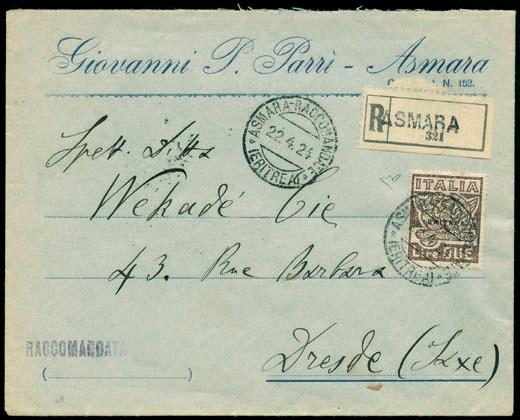 Giovanni P. Parrì - Asmara
N. 153.
R ASMARA
321
ASMARA-RACCOMANDATE
22.4.24
(ERITREA)
Spett. Ditta
Wekadé Cie
43. Rue Barbara
Dresde (Sxe)
ITALIA
LIRE 1
ASMARA
(ERITREA)
RACCOMANDATA
(                )